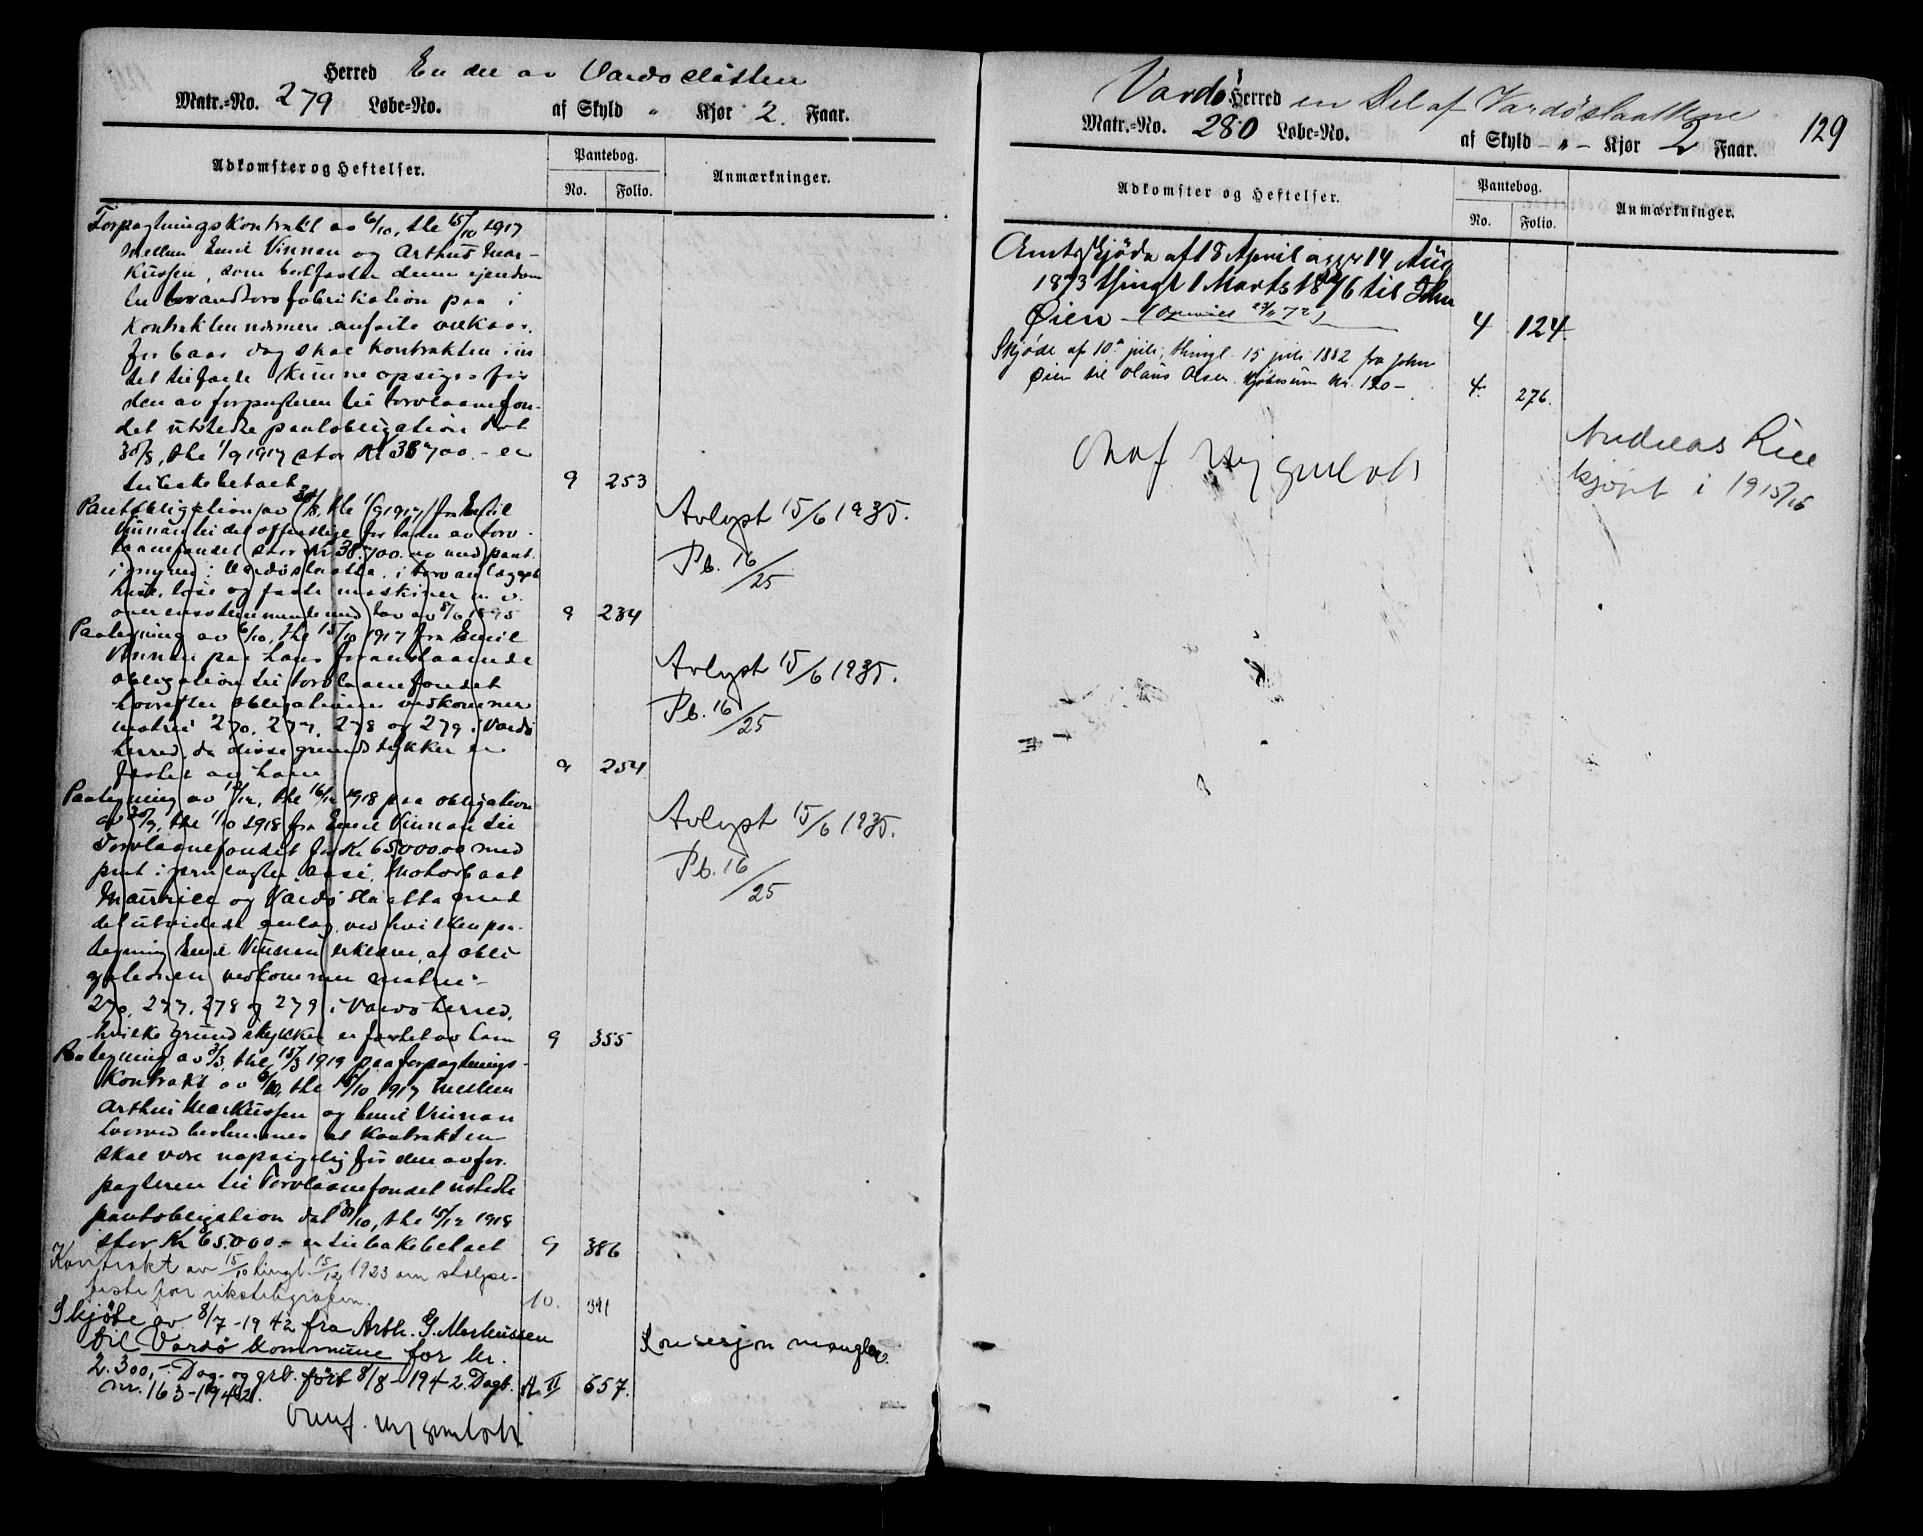 Herred En del av Vardøslåtten
Matr.-No. 279 Løbe-No. af Skyld " Kjør 2. Faar.
Adkomster og Heftelser.
Pantebog.
No. Folio.
Anmærkninger.
Forpagtningskontrakt av 6/10, thl 15/10 1917
mellem Emil Vinnan og Arthus Mar-
kussen, som bortfaster denne ejendom
til brændtorvfabrikation paa i
kontrakten nærmere anførte vilkaar.
for baar dag skal kontrakten i in
tet tilfælde kunne opsiges før
den av forpagteren til torvlaanefon-
det utstedte pantobligation dat
30/8, thl 1/9 1917 stor Kr 38700.- er
tilbakebetalt. 9 253
Pantobligation av 30/8, thl 1/9 1917, fra Emil
Vinnan til det offentlige for laan av torv-
laanefondet stor Kr 38.700.00 med pant
i myren i Vardøslaatta. i torvanlægget
huse, løse og faste maskiner m. v.
overensstemmende med lov av 8/6 1895 9 234
Avlyst 15/6 1935.
Pb. 16/25
Paategning av 6/10, thl 15/10 1917 fra Emil
Vinnan paa hans foranstaaende
obligation til torvlaanefondet
hvorefter obligationen vedkommer
matrnr 270, 277, 278 og 279 i Vardø
herred, da disse grundstykker er
fæstet av ham 9 254
Avlyst 15/6 1935.
Pb. 16/25
Paategning av 12/12, thl 16/12 1918 paa obligation
av 30/9, thl 1/10 1918 fra Emil Vinnan til
Torvlaanefondet for Kr 65000.00 med
pant i jernlagter, Motorbaat
Maurice og Vardø slaatta med
det utvidede anlæg, ved hvilken paa-
tegning Emil Vinnan erklærer, at obli
gationen vedkommer matrnr
270, 277, 278 og 279 i Vardø herred,
hvilke grundstykker er fæstet av ham 9 355
Avlyst 15/6 1935.
Pb. 16/25
Paategning av 3/3, thl 15/3 1919 paa forpagtnings-
kontrakt av 6/10, thl 15/10 1917 mellem
Arthus Markussen og Emil Vinnan
hvorved bestemmes at kontrakten
skal være uopsigelig før den av for-
pagteren til Torvlaanefondet utstedte
pantobligation dat 30/10, thl 15/12 1918
stor Kr 65.000.- er tilbakebetalt 9 386
Kontrakt av 15/10 tingl. 15/12 1923 om stolpe-
feste for rikstelegrafen. 10. 391
Skjøte av 8/7-1942 fra Arth. G. Markussen
til Vardø kommune for kr.
2.300,- Dag- og grb. ført 8/8-1942. Dagb.
nr. 163-1942. A II 657.
Konsesjon mangler.
Vardø Herred en Del af Vardøslaattene
129
Matr.-No. 280 Løbe-No. af Skyld - " - Kjør 2 Faar.
Adkomster og Heftelser.
Pantebog.
No. Folio.
Anmærkninger.
Amtsskjøde af 18 April appr 14 Aug
1873 thingl 1 Marts 1876 til John
Øien 4 124.
Skjøde af 10de juli, thingl. 15 juli 1882 fra John
Øien til Olaus Olsen. Kjøbesum Kr. 120.- 4. 276.
Andreas Lill
kjøpt i 1915/16